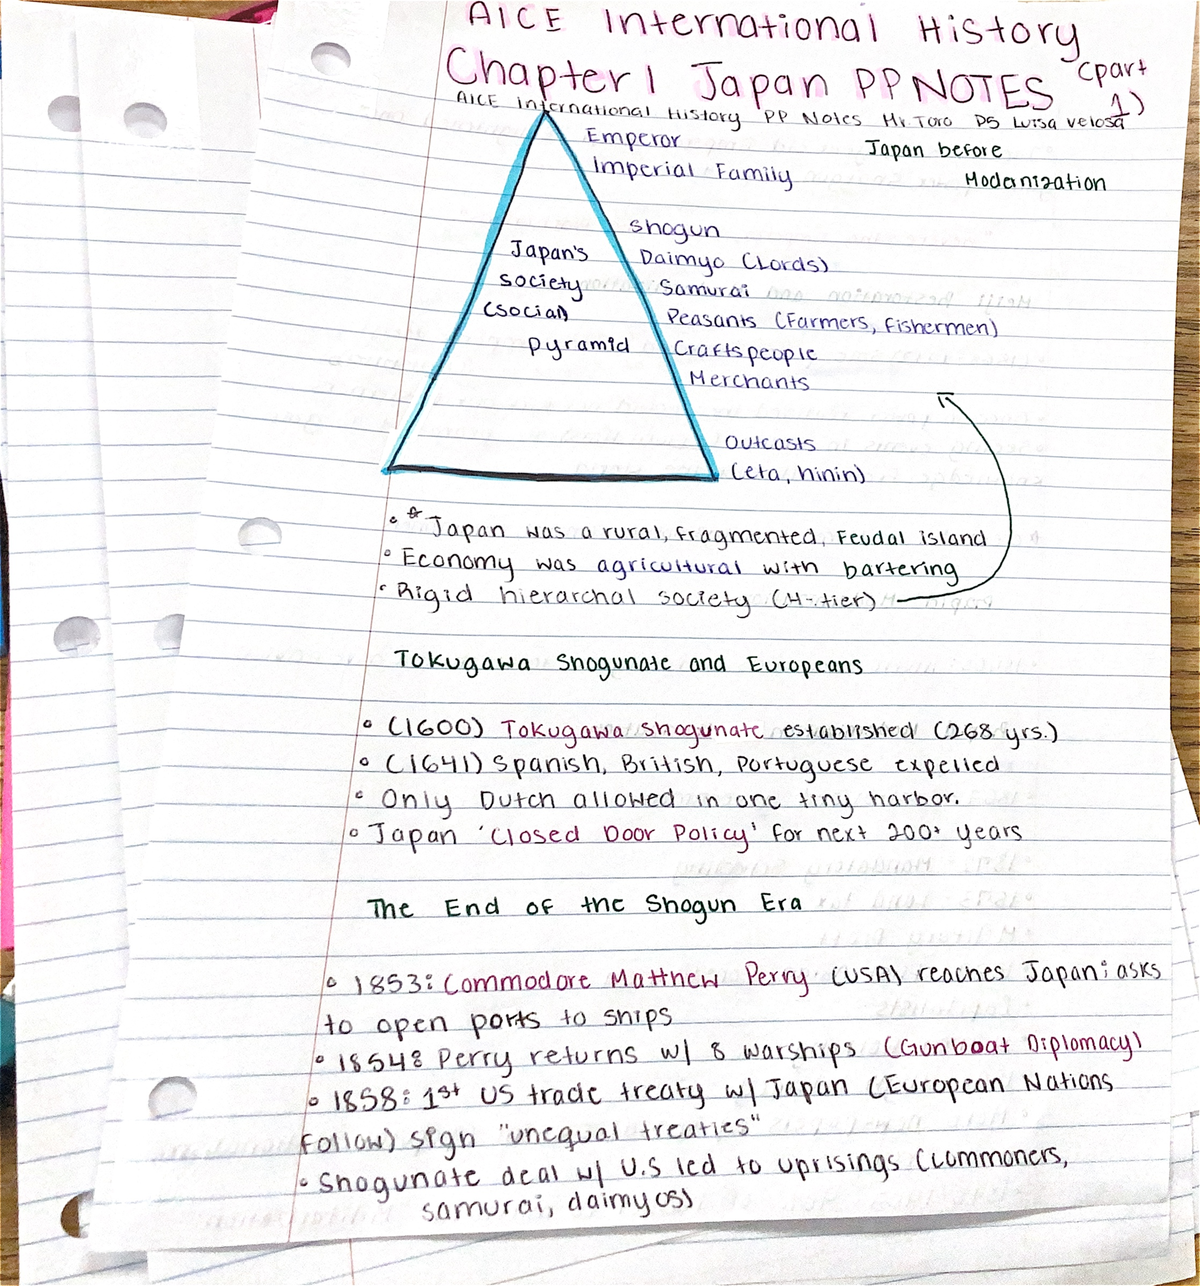 AICE International History
Chapter 1 Japan PP NOTES (part 1)
AICE International History PP Notes Mr. Toro P5 Luisa Velosa
Emperor
Imperial Family
Japan before
Modernization
Shogun
Daimyo (Lords)
Samurai
Peasants (Farmers, Fishermen)
Craftspeople
Merchants
Japan's
society
(social)
pyramid
Outcasts
(eta, hinin)
Japan was a rural, fragmented, Feudal island
Economy was agricultural with bartering
Rigid hierarchal society (4-tier)
Tokugawa Shogunate and Europeans
(1600) Tokugawa Shogunate established (268 yrs.)
(1641) Spanish, British, Portuguese expelled
Only Dutch allowed in one tiny harbor.
Japan 'Closed Door Policy' for next 200+ years
The End of the Shogun Era
1853: Commodore Matthew Perry (USA) reaches Japan: asks
to open ports to ships
1854: Perry returns w/ 8 warships (Gunboat Diplomacy)
1858: 1st US trade treaty w/ Japan (European Nations
Follow) sign "unequal treaties"
Shogunate deal w/ U.S led to uprisings (commoners,
samurai, daimyos)